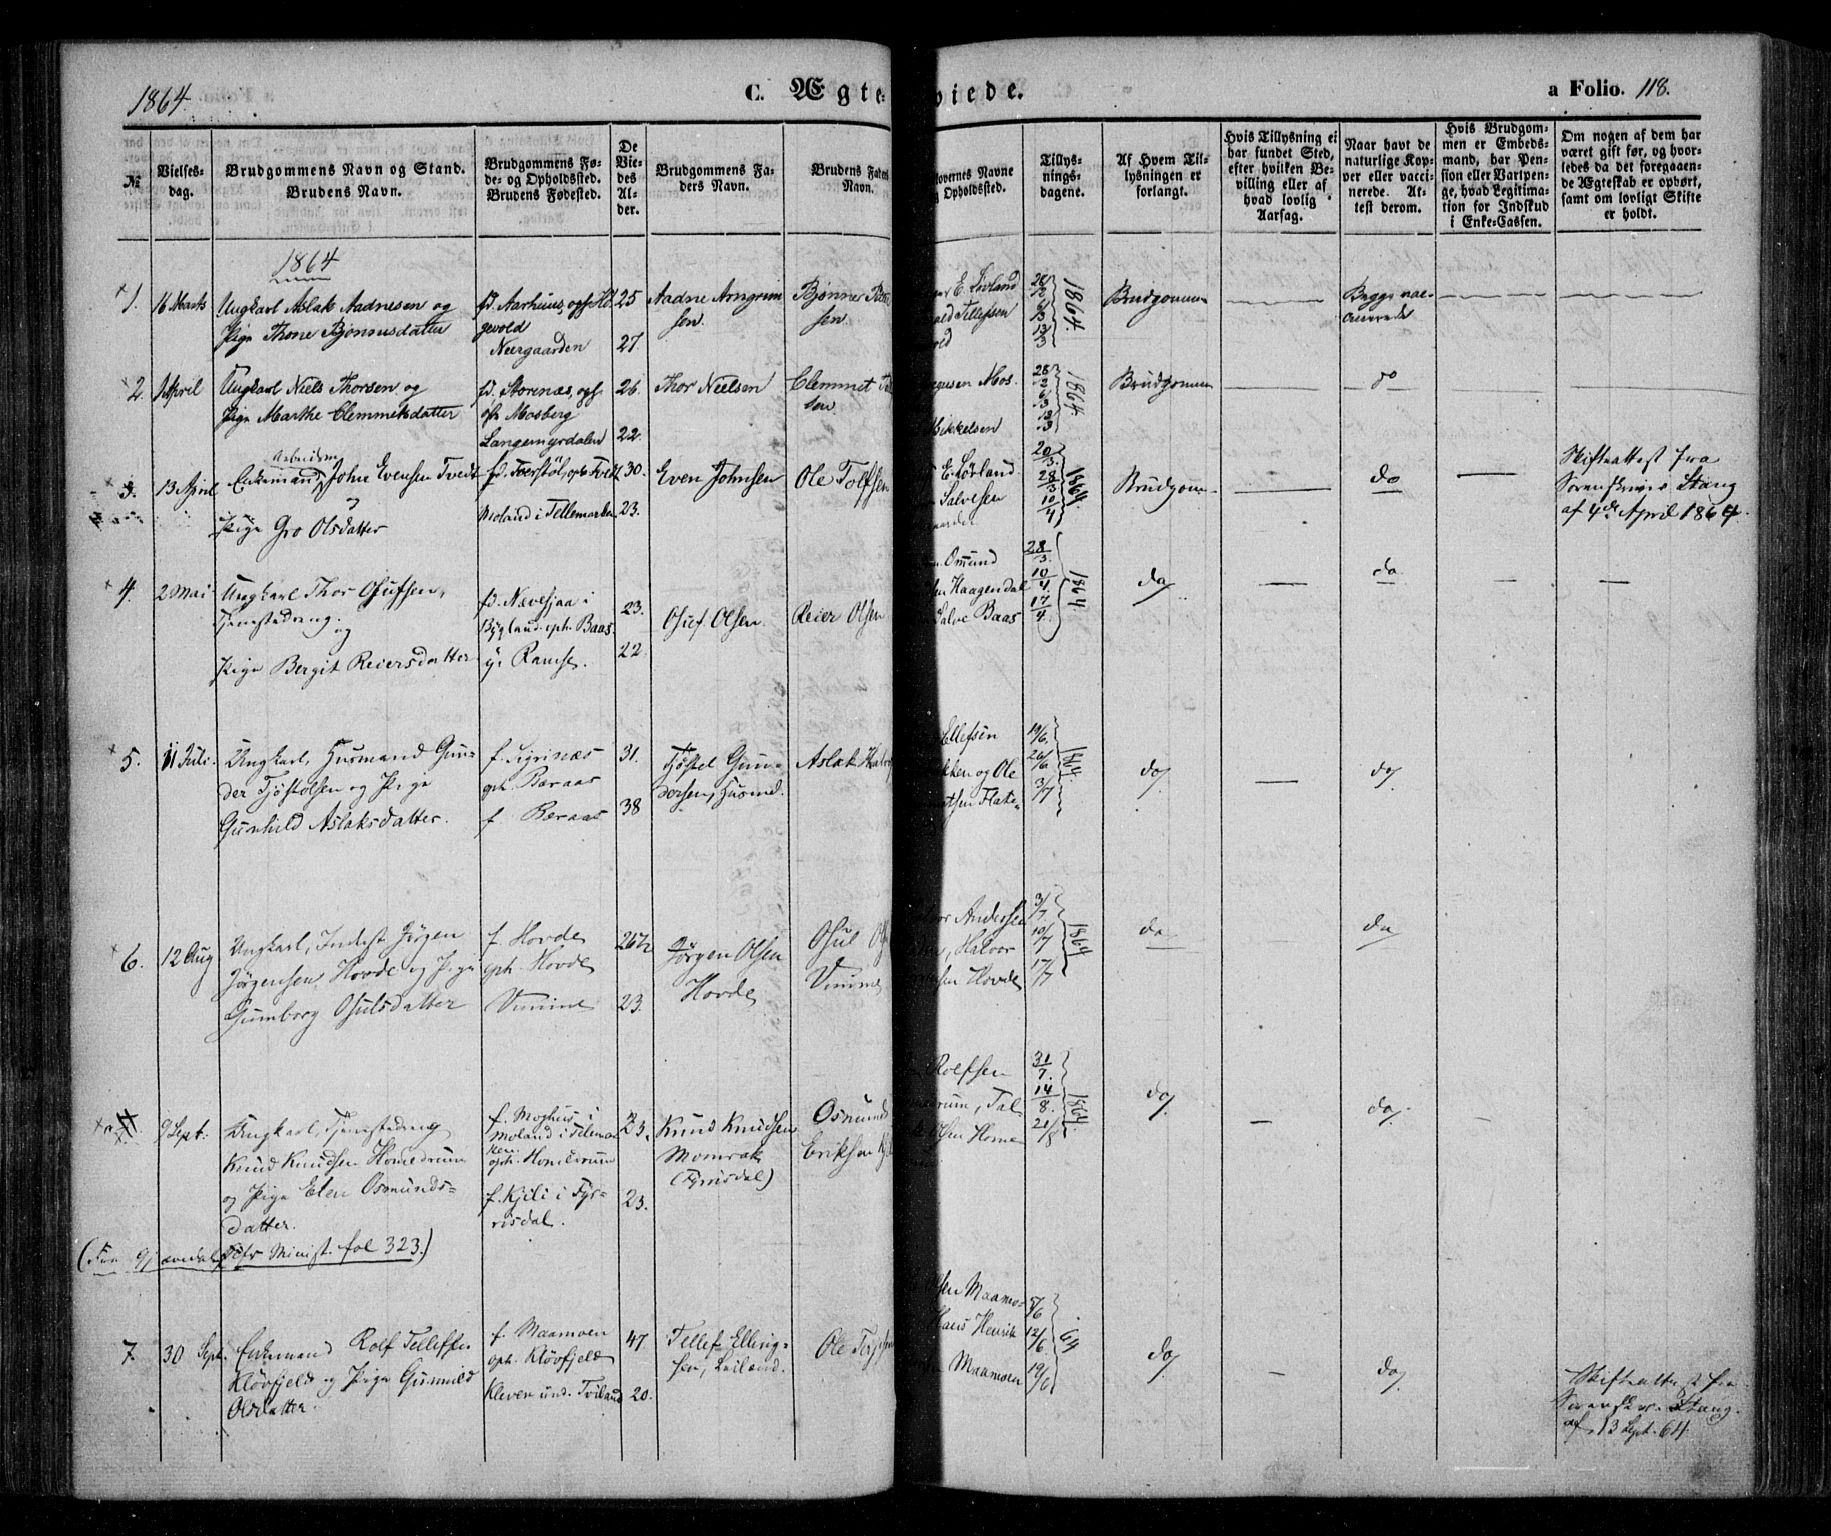 1864.
C. Ægte-
viede.
a Folio. 118.
№
Vielses-
dag.
Brudgommens Navn og Stand.
Brudens Navn.
Brudgommens Fø-
de- og Opholdssted.
Brudens Fødested.
De
Vie-
des
Al-
der.
Brudgommens Fa-
ders Navn.
Brudens Faders
Navn.
lovernes Navne
Opholdssted.
Tillys-
nings-
dagene.
Af Hvem Til-
lysningen er
forlangt.
Hvis Tillysning ei
har fundet Sted,
efter hvilken Be-
villing eller af
hvad lovlig
Aarsag.
Naar havt de
naturlige Kop-
per eller vacci-
nerede. At-
test derom.
Hvis Brudgom-
men er Embeds-
mand, har Pen-
sion eller Vartpen-
ge, hvad Legitima-
tion for Indskud
i Enke-Cassen.
Om nogen af dem har
været gift før, og hvor-
ledes da det foregaaen-
de Ægteskab er ophørt,
samt om lovligt Skifte
er holdt.
1864
1. 16 Marts
Ungkarl Aslak Aadnesen og
Pige Thone Bjønnusdatter
fd. Aarhuus, oph
gevold
Neergaarden
25
27
Aadne Arngrim
sen.
Bjønne
sen
E. Løvland
Tellefsen
28/2 6/3 13/3 1864
Brudgommen
Begge vac-
cinerede
2. 1 April
Ungkarl Niels Thorsen og
Pige Marthe Clemmetsdatter
fd. Storenæs, oph
Mosberg
Langemyrdalen
26.
22.
Thor Nielsen
Clemmet
sen
Mos.
Mikkelsen
28/2 6/3 13/3 1864
Brudgommen
do
3. 13 April
Enkemand, Arbeidsm John Evensen Tvedt
og
Pige Gro Olsdatter
fd. Føerstøl, oph Tvedt
Moland i Tellemarken
30.
23.
Even Johnsen
Ole Tolfsen
E. Lørland
Salvesen
20/3 28/3 10/4 1864
Brudgom-
do
Skifteattest fra
Sorenskriver Stang
af 4de April 1864.
4. 2 Mai
Ungkarl Thor Osufsen,
Tjenestedreng.
og
Pige Bergit Reiersdatter
fd. Nævesjaa i
Bygland. oph. Baas.
Ramse.
23.
22
Osuf. Olsen.
Reier Olsen
Omund
Haagendal
Salve Baas
28/3 10/4 17/4 1864
do
do
5. 11 Juli.
Ungkarl, Husmand Gun-
der Tjøstolsen og Pige
Gunhild Aslaksdatter.
f. Sigrinæs
oph. Beraas
f. Beraas
31.
38
Tjøstel Gun-
dersen, Husmd.
Aslak
Ellefsen
og Ole
Flate-
19/6 26/6 3/7 1864
do
do
6. 12 Aug
Ungkarl, Inderst Jørgen
Jørgensen Hovde og Pige
Gumborg Osulsdatter
f. Hovde
oph. Hovde
Vimme
26½
23.
Jørgen Olsen
Hovde
Osul
Vimme
Anderssen
Halvor
Hovde
3/7 10/7 17/7 1864
do
do
9 Sept.
Ungkarl, Tjenestedreng
Knud Knudsen Homedrum
og Pige Elen Osmunds-
datter.
(Fra Gjøvedals Minist. fol 323.)
f. Moghus i
Moland i Telemar
ken
oph. Homedrum
f. Kjili i Fyr-
risdal.
23.
23.
Knud Knudsen
Momrak
(Fyrrisdal)
Osmund
Eriksen
Rolfsen
drum, Tal-
Olsen Home
31/7 14/8 21/8 1864
do
do
7. 30 Sept.
Enkemand Rolf Telleffs.
Kløvfjeld og Pige Gunnild
Olsdatter.
f. Maamoen
oph. Kløvfjeld
Kleven und. Tviland
47
20.
Tellef Elling-
sen, Leiland.
Ole Terjesen
Maamo-
Hans Henrik
Maamoen
5/6 12/6 19/6 64
do
do
Skifteattest fra
Sorenskr. Stang.
af 13 Sept. 64